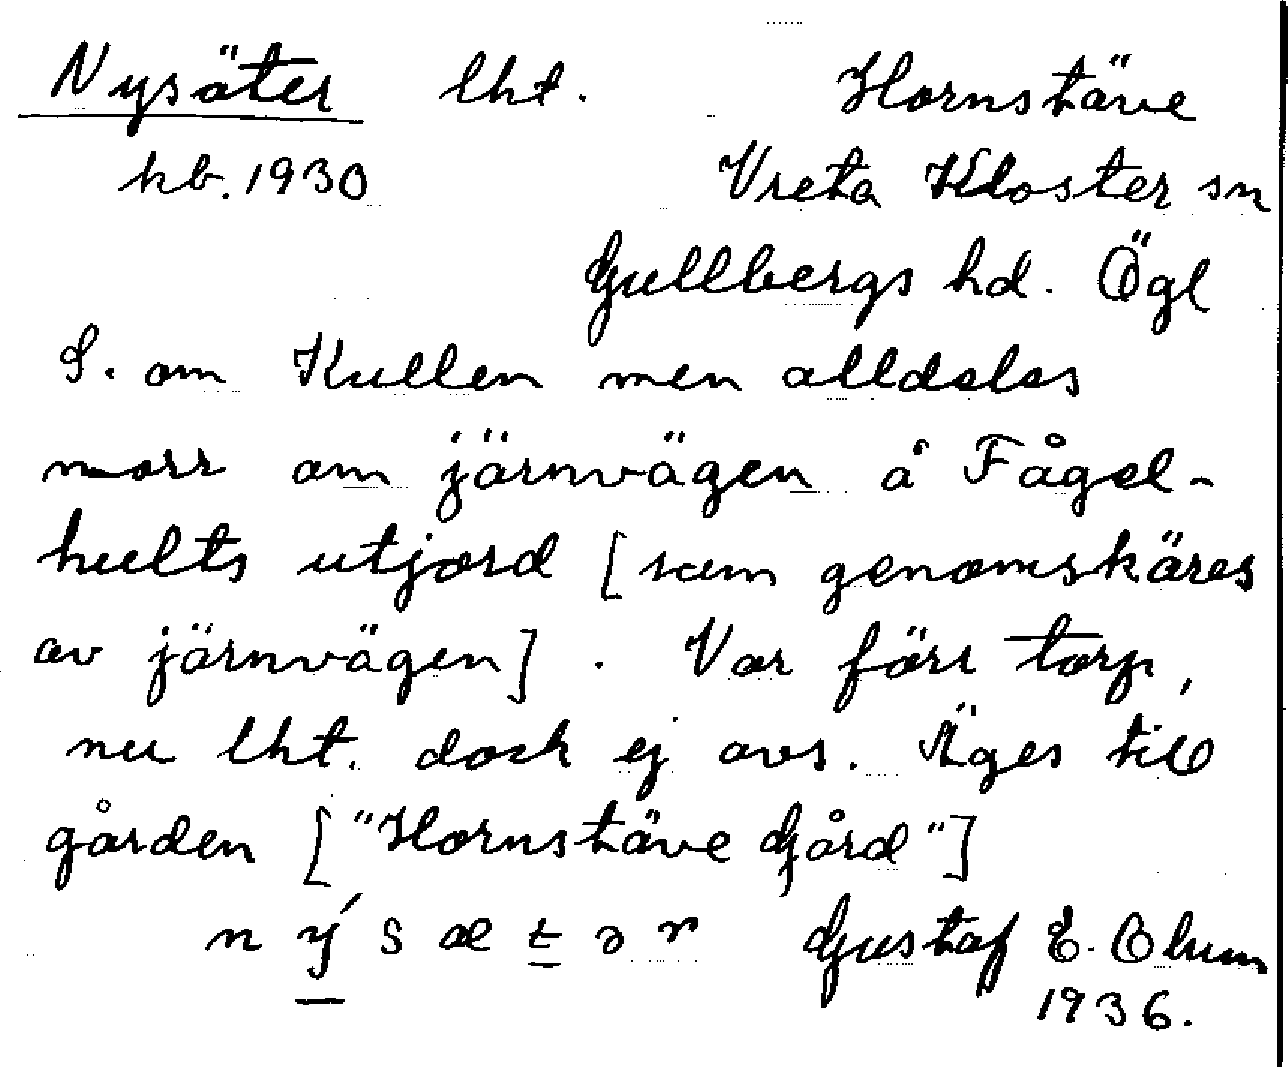 Nysäter lht. Hornstäve
kb. 1930 Vreta Kloster sn
Gullbergs hd. Ögl
S. om Kullen men alldeles
norr om järnvägen å Fågel-
hults utjord [som genomskäres
av järnvägen]. Var förr torp,
nu lht. dock ej avs. Äges till
gården ["Hornstäve Gård"]
n ý s æ t ə r Gustaf E. Ohum
1936.